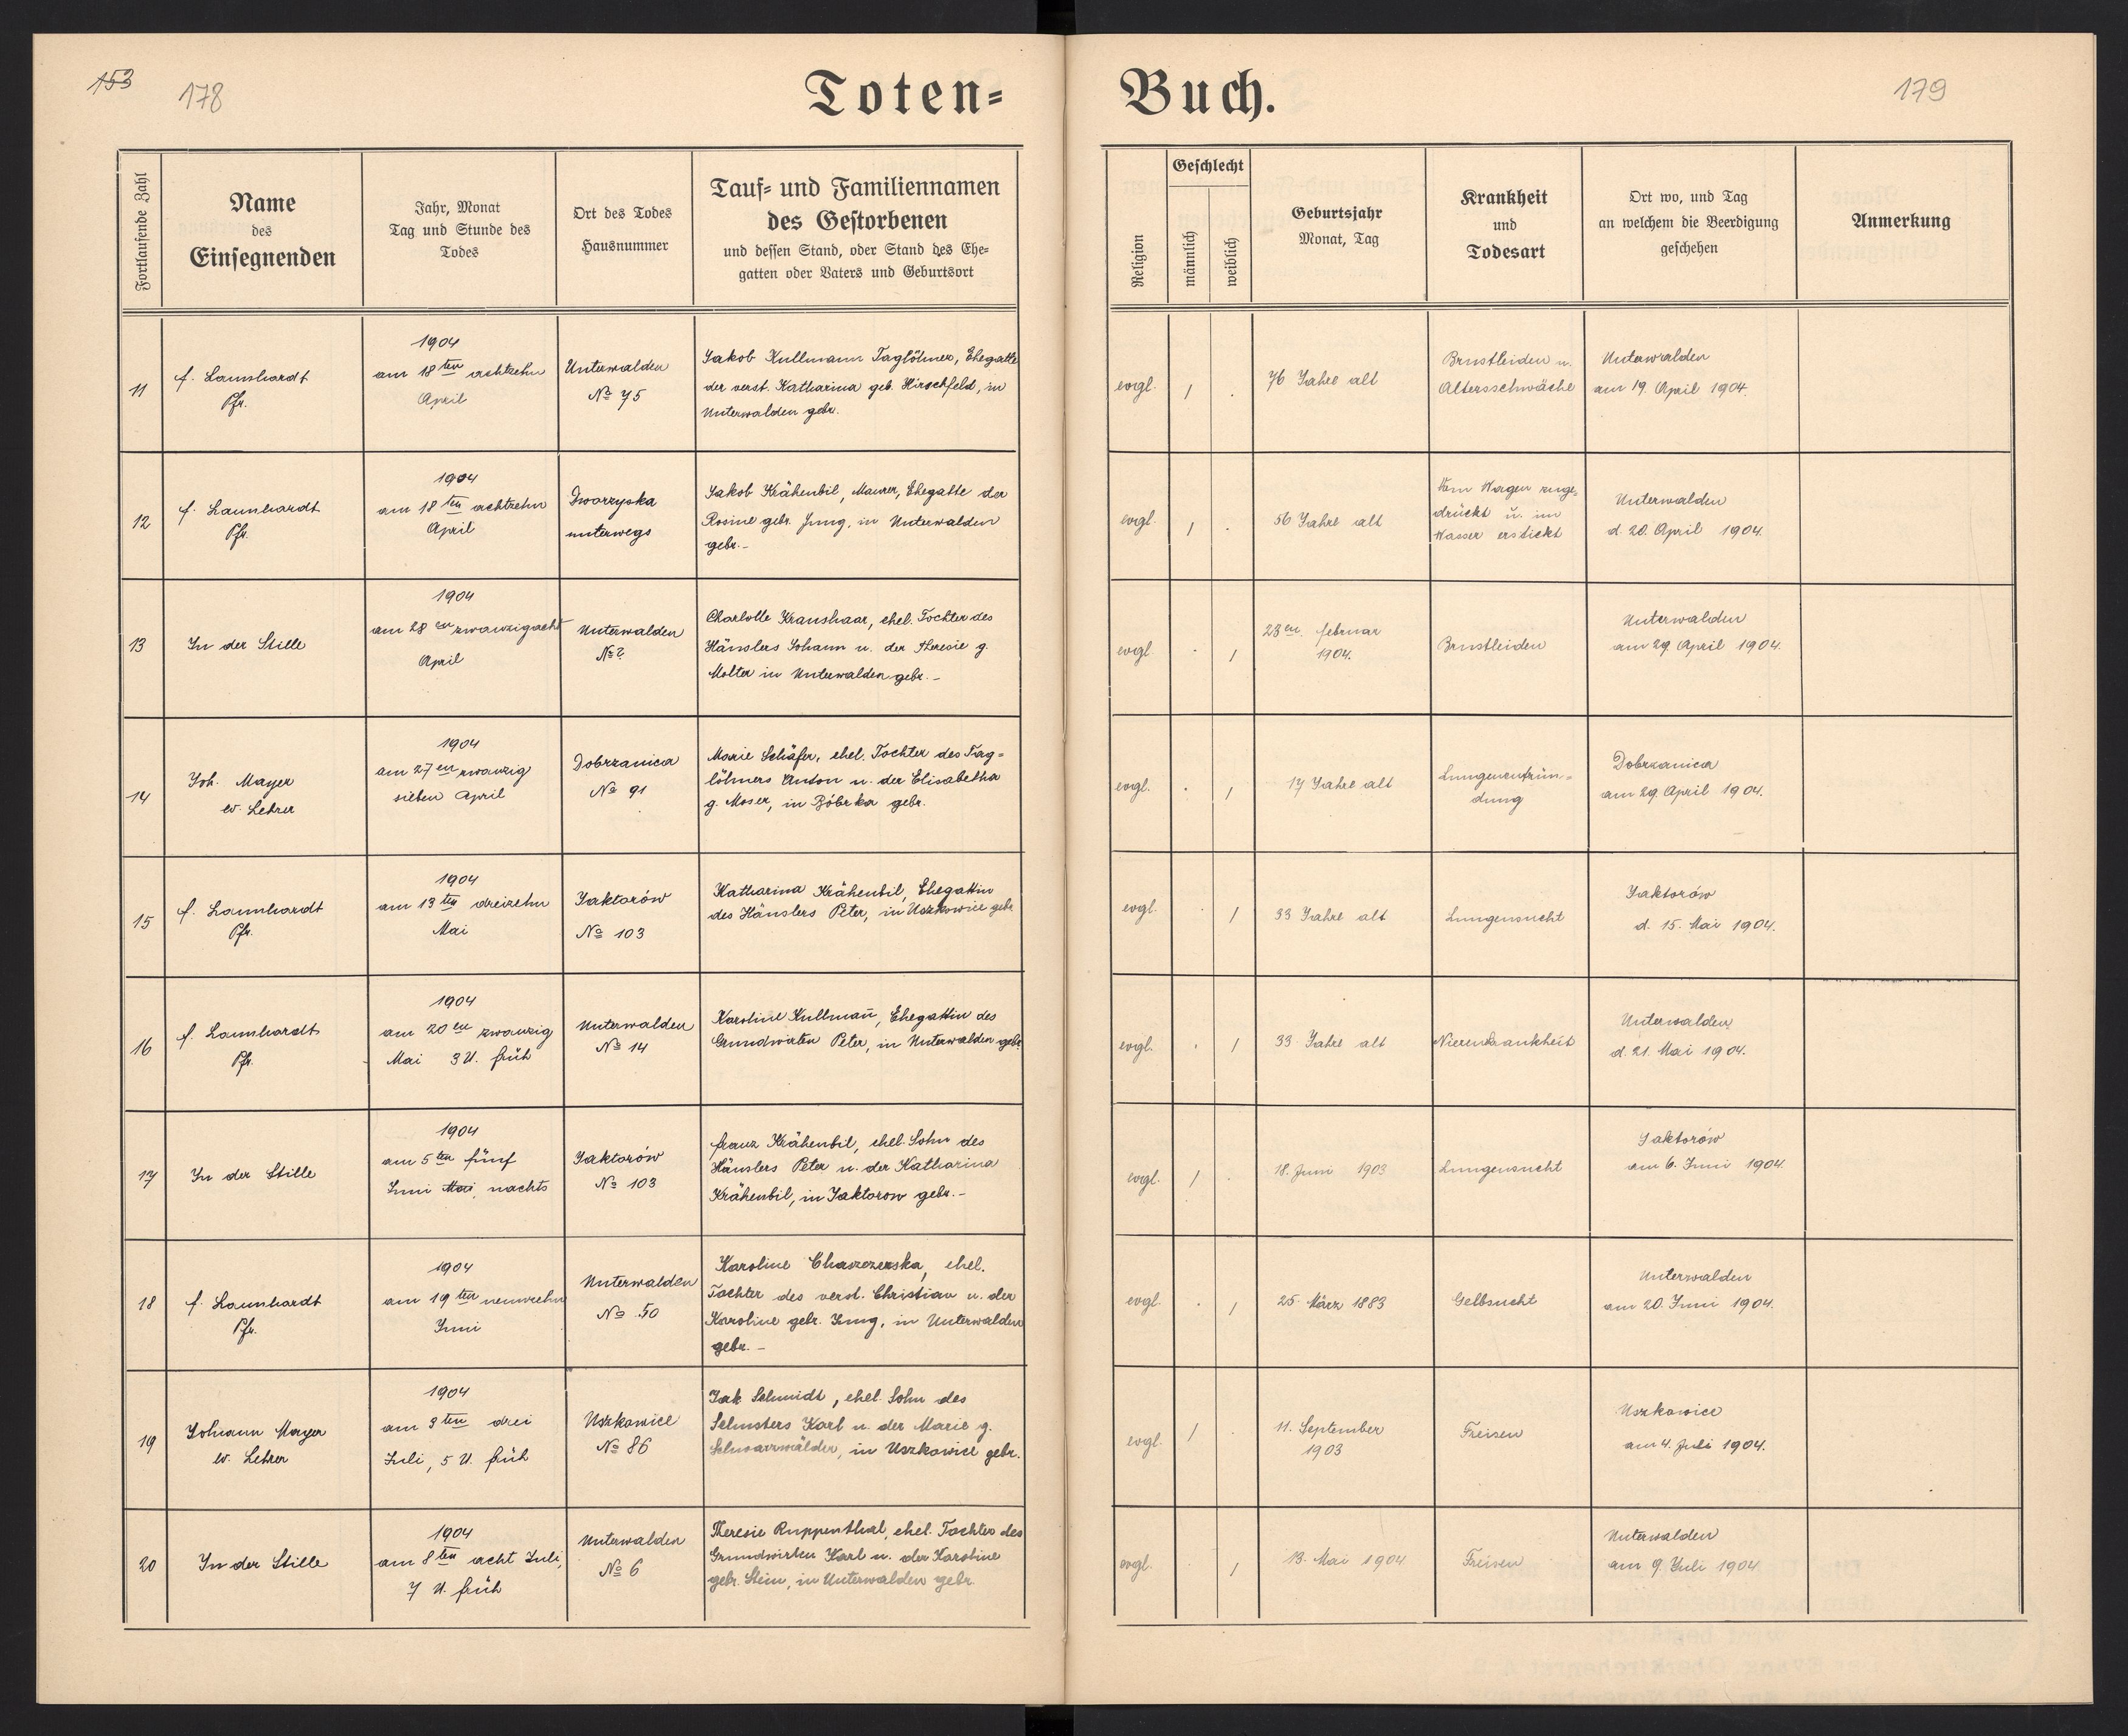 153
178
Toten=
Buch.
179
Fortlaufende Zahl
Name
des
Einsegnenden
Jahr, Monat
Tag und Stunde des
Todes
Ort des Todes
Hausnummer
Tauf= und Familiennamen
des Gestorbenen
und dessen Stand, oder Stand des Ehe=
gatten oder Vaters und Geburtsort
Religion
Geschlecht
männlich
weiblich
Geburtsjahr
Monat, Tag
Krankheit
und
Todesart
Ort wo, und Tag
an welchem die Beerdigung
geschehen
Anmerkung
11
f. Launhardt
Pfr.
1904
am 18ten achtzehn
April
Unterwalden
No 75
Jakob Kullmann Taglöhner, Ehegatte
der verst. Katharina geb. Hirschfeld, in
Unterwalden gebr.
evgl.
1
.
76 Jahre alt
Brustleiden u.
Altersschwäche
Unterwalden
am 19. April 1904.
12
f. Launhardt
Pfr.
1904
am 18ten achtzehn
April
Dworzyska
unterwegs
Jakob Krähenbil, Maurer, Ehegatte der
Rosine gebr. Jung, in Unterwalden
gebr.-
evgl.
1
.
56 Jahre alt
Vom Wagen zuge=
drückt u. im
Wasser erstickt
Unterwalden
d. 20. April 1904.
13
In der Stille
1904
am 28en zwanzigacht
April
Unterwalden
No ?
Charlotte Kraushaar, ehel. Tochter des
Häuslers Johann u. der Theresie g.
Molter in Unterwalden gebr.-
evgl.
.
1
28en. Februar
1904.
Brustleiden
Unterwalden
am 29. April 1904.
14
Joh. Mayer
ev. Lehrer
1904
am 27en zwanzig
sieben April
Dobrzanica
No 91
Marie Schäfer, ehel. Tochter des Tag=
löhners Anton u. der Elisabetha
g. Moser, in Bóbrka gebr.
evgl.
.
1
17 Jahre alt
Lungenentzün=
dung
Dobrzanica
am 29. April 1904.
15
f. Launhardt
Pfr.
1904
am 13ten dreizehn
Mai
Jaktorów
No 103
Katharina Krähenbil, Ehegattin
des Häuslers Peter, in Uszkowice gebr
evgl.
.
1
33 Jahre alt
Lungensucht
Jaktorów
d. 15. Mai 1904.
16
f. Launhardt
Pfr.
1904
am 20en zwanzig
Mai 3 U. früh
Unterwalden
No 14
Karoline Kullmañ, Ehegattin des
Grundwirten Peter, in Unterwalden gebr.
evgl.
.
1
33 Jahre alt
Nierenkrankheit
Unterwalden
d. 21. Mai 1904.
17
In der Stille
1904
am 5ten fünf
Juni Mai, nachts
Jaktorów
No 103
Franz Krähenbil, ehel. Sohn des
Häuslers Peter u. der Katharina
Krähenbil, in Jaktorow gebr.-
evgl.
1
.
18. Juni 1903
Lungensucht
Jaktorów
am 6. Juni 1904.
18
f. Launhardt
Pfr.
1904
am 19ten neunzehn
Juni
Unterwalden
No 50
Karoline Chaszczerska, ehel.
Tochter des verst. Christian u. der
Karoline gebr. Jung, in Unterwalden
gebr.-
evgl.
.
1
25. März 1883
Gelbsucht
Unterwalden
am 20. Juni 1904.
19
Johann Mayer
ev. Lehrer
1904
am 3ten drei
Juli, 5 U. früh
Uszkowice
No 86
Jak Schmidt, ehel. Sohn des
Schusters Karl u. der Marie g.
Schwarzwälder, in Uszkowice gebr.
evgl.
1
.
11. September
1903
Freisen
Uszkowice
am 4. Juli 1904.
20
In der Stille
1904
am 8ten acht Juli,
7 U. früh
Unterwalden
No 6
Theresie Ruppenthal, ehel. Tochter des
Grundwirten Karl u. der Karoline
gebr. Stein, in Unterwalden gebr.
evgl.
1
13. Mai 1904
Freisen
Unterwalden
am 9. Juli 1904